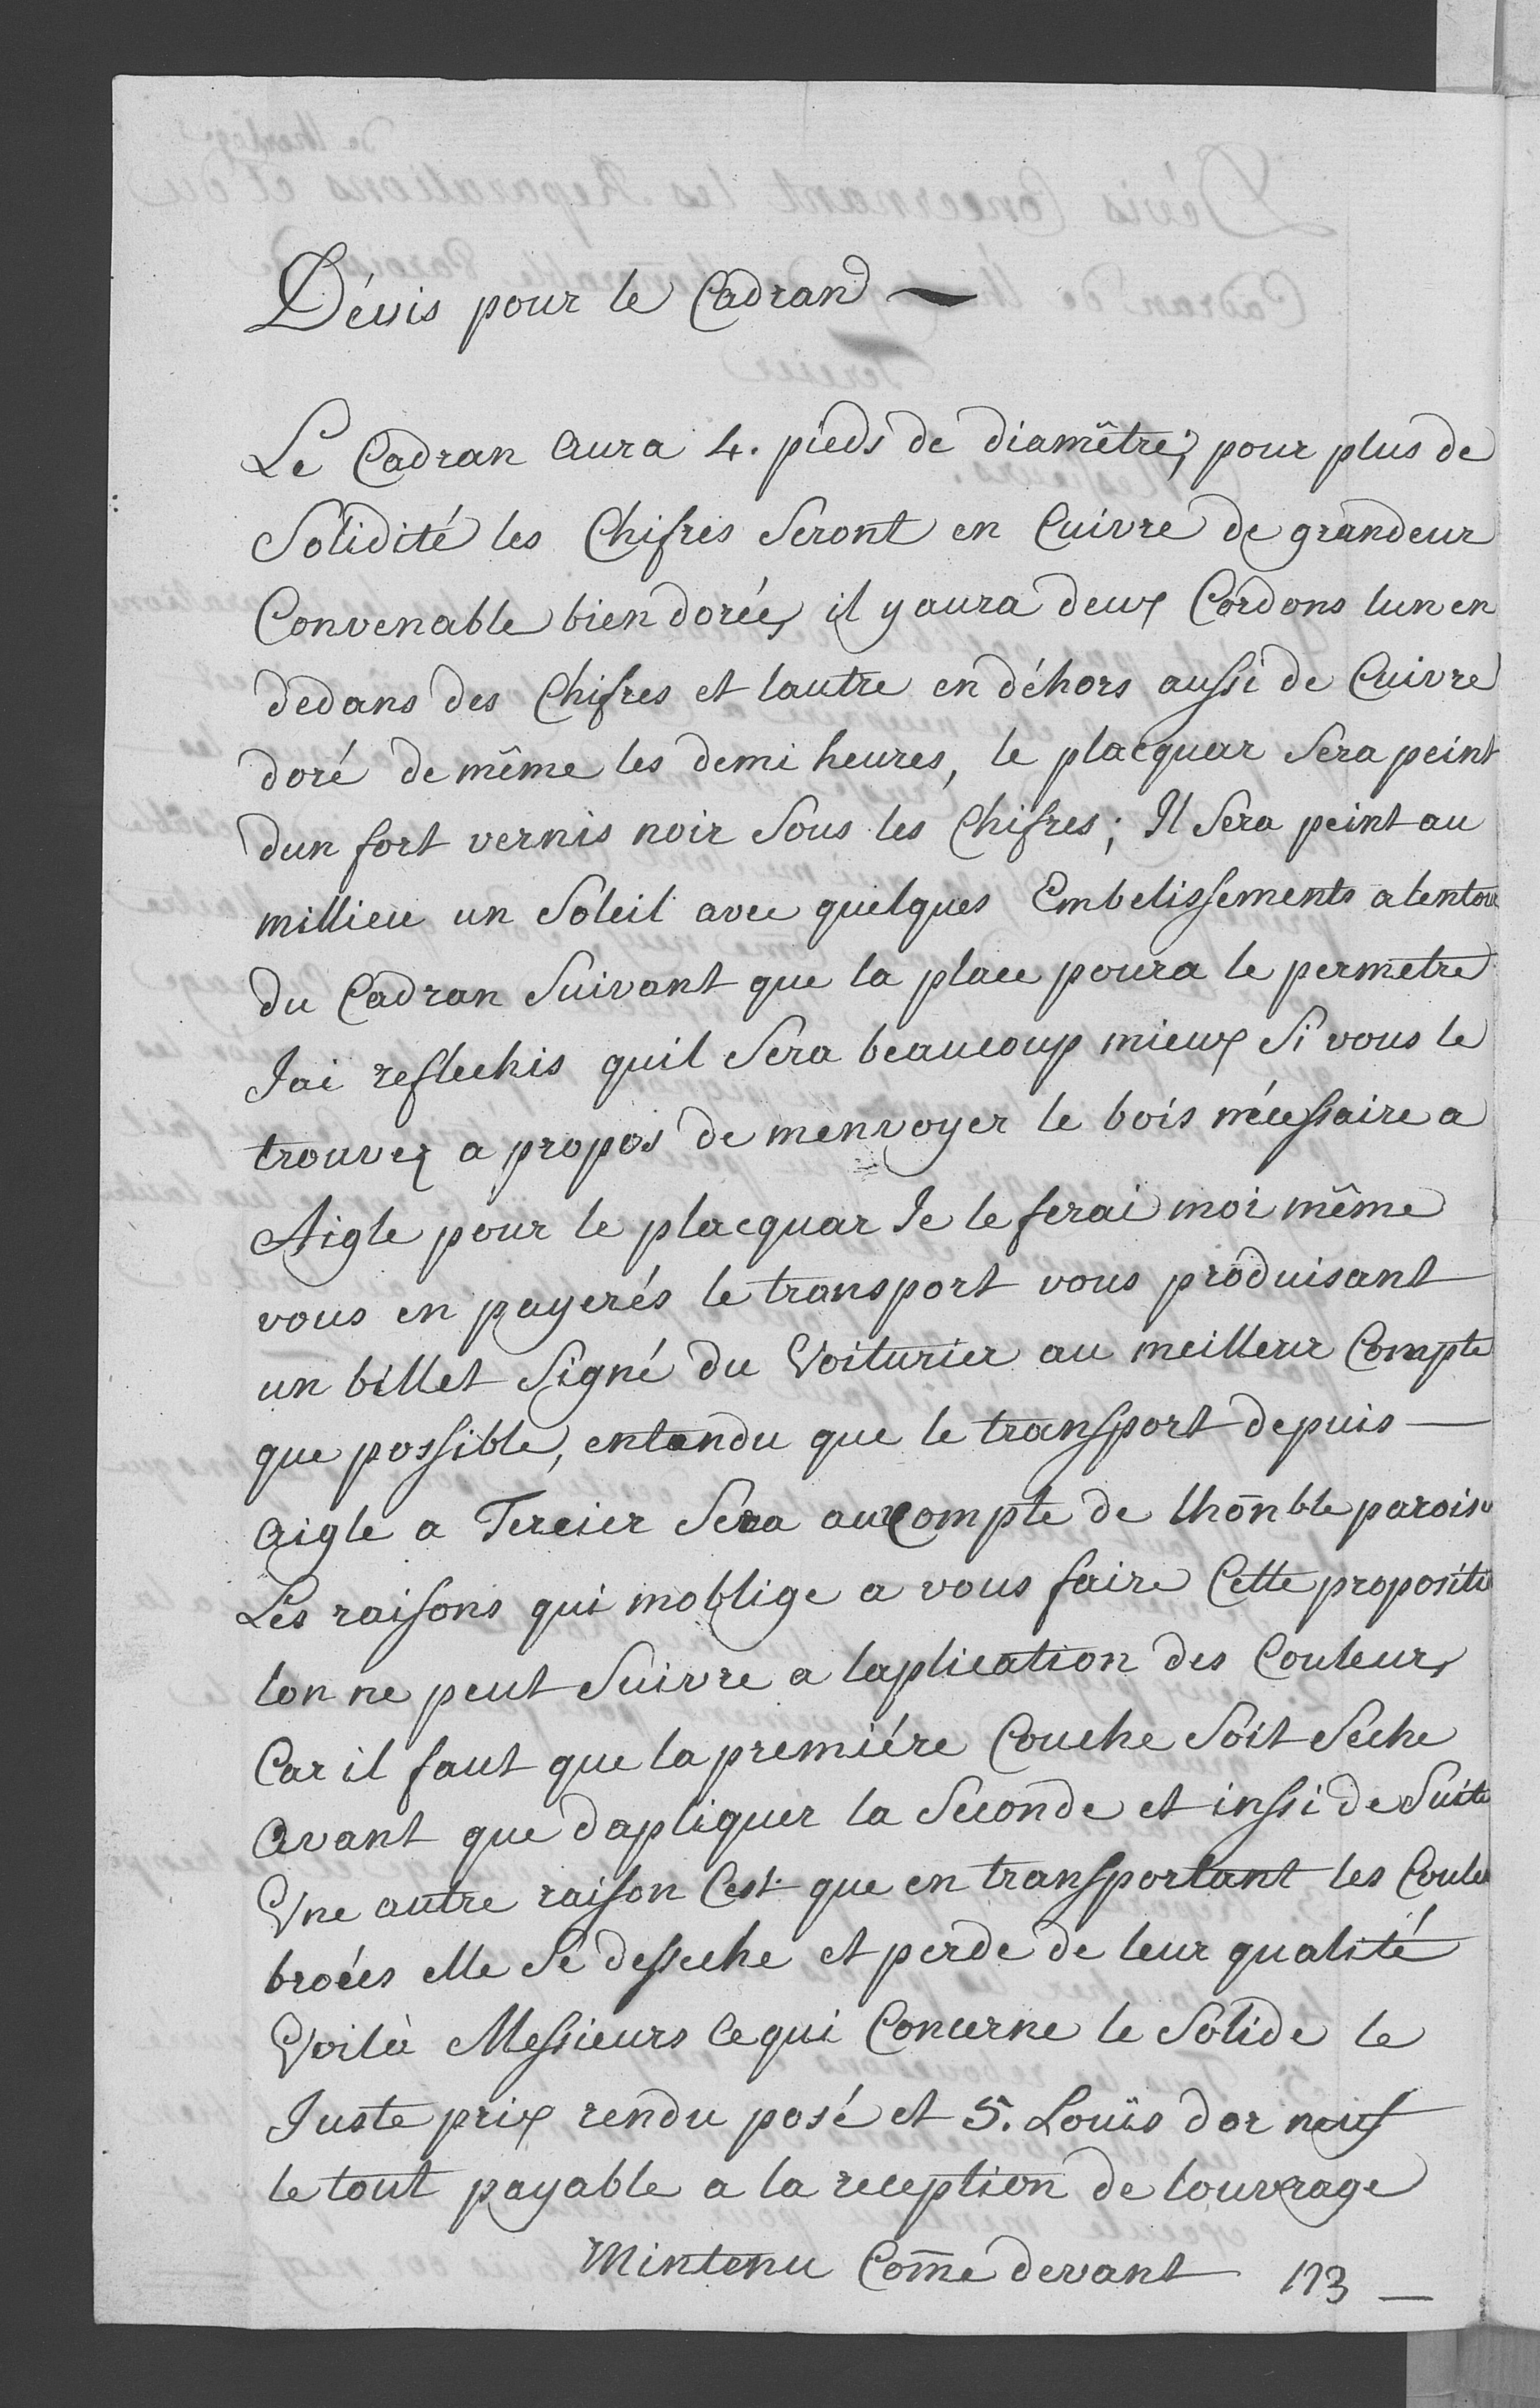 Dévis pour le Cadran
Le Cadran aura 4. pieds de diamêtre; pour plus de
Solidité les Chifres Seront en Cuivre de grandeur
Convenable bien dorée, il y aura deux Cordons lun en
dedans des Chifres et lautre en déhors aussi de Cuivre
doré de même les demi heures, le placquar Sera peint
dun fort vernis noir Sous les Chifres; Il Sera peint au
millieu un Soleil avec quelques Embelissements alentou
du Cadran Suivant que la place poura le permetre
Jai reflechis quil Sera beaucoup mieux Si vous le
trouvez a propos de menvoyer le bois nécessaire a
Aigle pour le placquar Je le ferai moi même
vous en payerés le transport vous produisant
un billet Signé du Voiturier au meilleur Compte
que possible, entandu que le transport depuis —
aigle a Tercier Sera au compte de lhon̄ble parois
Les raisons qui moblige a vous faire Cette propositi
lon ne peut Suivre a laplication des Couleurs
Car il faut que la premiére Couche Soit Seche
avant que dapliquer la Seconde et inssi de Suite
Une autre raison Cest que en transportant les Coule
broées elle Se desseche et perde de leur qualité
Voilà Messieurs Ce qui Concerne le Solide le
Juste prix rendu posé et 5. Louïs dor neuf
le tout payable a la reception de louvrage
Mintenu Com̄e devant 113 —